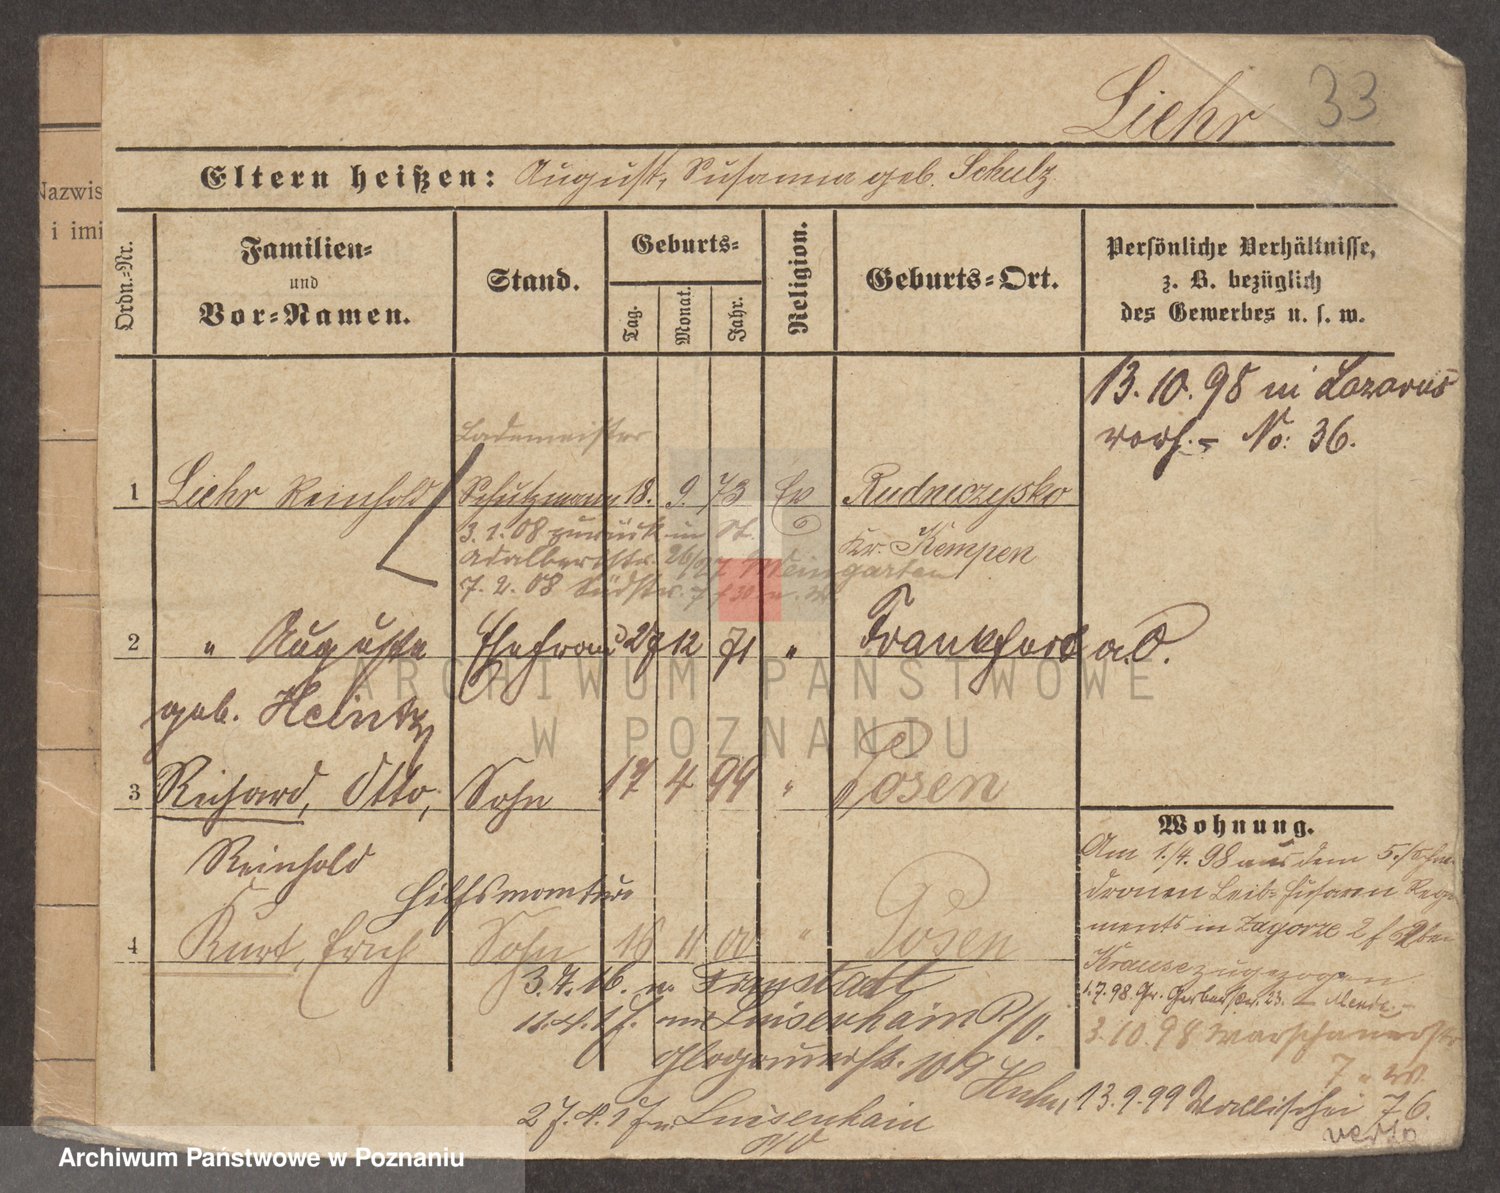 Liehr 33
Eltern heißen: August, Susanna geb. Schulz
Nazwis
i imi
Ordn.-Nr.
Familien-
und
Vor-Namen.
Stand.
Geburts-
Tag.
Monat.
Jahr.
Religion.
Geburts-Ort.
Persönliche Verhältnisse,
z. B. bezüglich
des Gewerbes u. s. w.
13.10.98 in Lazarus
vorh. - No: 36.
Lademeister
1 Liehr Reinhold Schutzmann 18. 9. 73 Ev Rudniczysko
3.1.08 zurück in St.
Kr. Kempen
Adalbertstr. 26/27 Weingarten
7.2.08 Südstr. 7
2 " Auguste Ehefrau 27 12 71 " Frankfurt a.O.
geb. Heintz
3 Richard, Otto, Sohn 17 4 99 " Posen
Reinhold
Hilfsmonteur
4 Kurt, Erich Sohn 18 11 01 " Posen
3.7.16. n. Fraustadt
11.4.17. von Luisenhain P/O.
Glogauerstr. 109
27.4.17 n. Luisenhain
P/O
Wohnung.
Am 1./4. 98 aus dem 5./Schwa-
dronen Leib-Husaren Regi-
ments in Zagorze 2 bei
Krause zugezogen
1.7.98 Gr. Gerberstr. 23.
3.10.98 Warschauerstr
7
13.9.99 Wallischei 76.
verso
ARCHIWUM PAŃSTWOWE
W POZNANIU
Archiwum Państwowe w Poznaniu